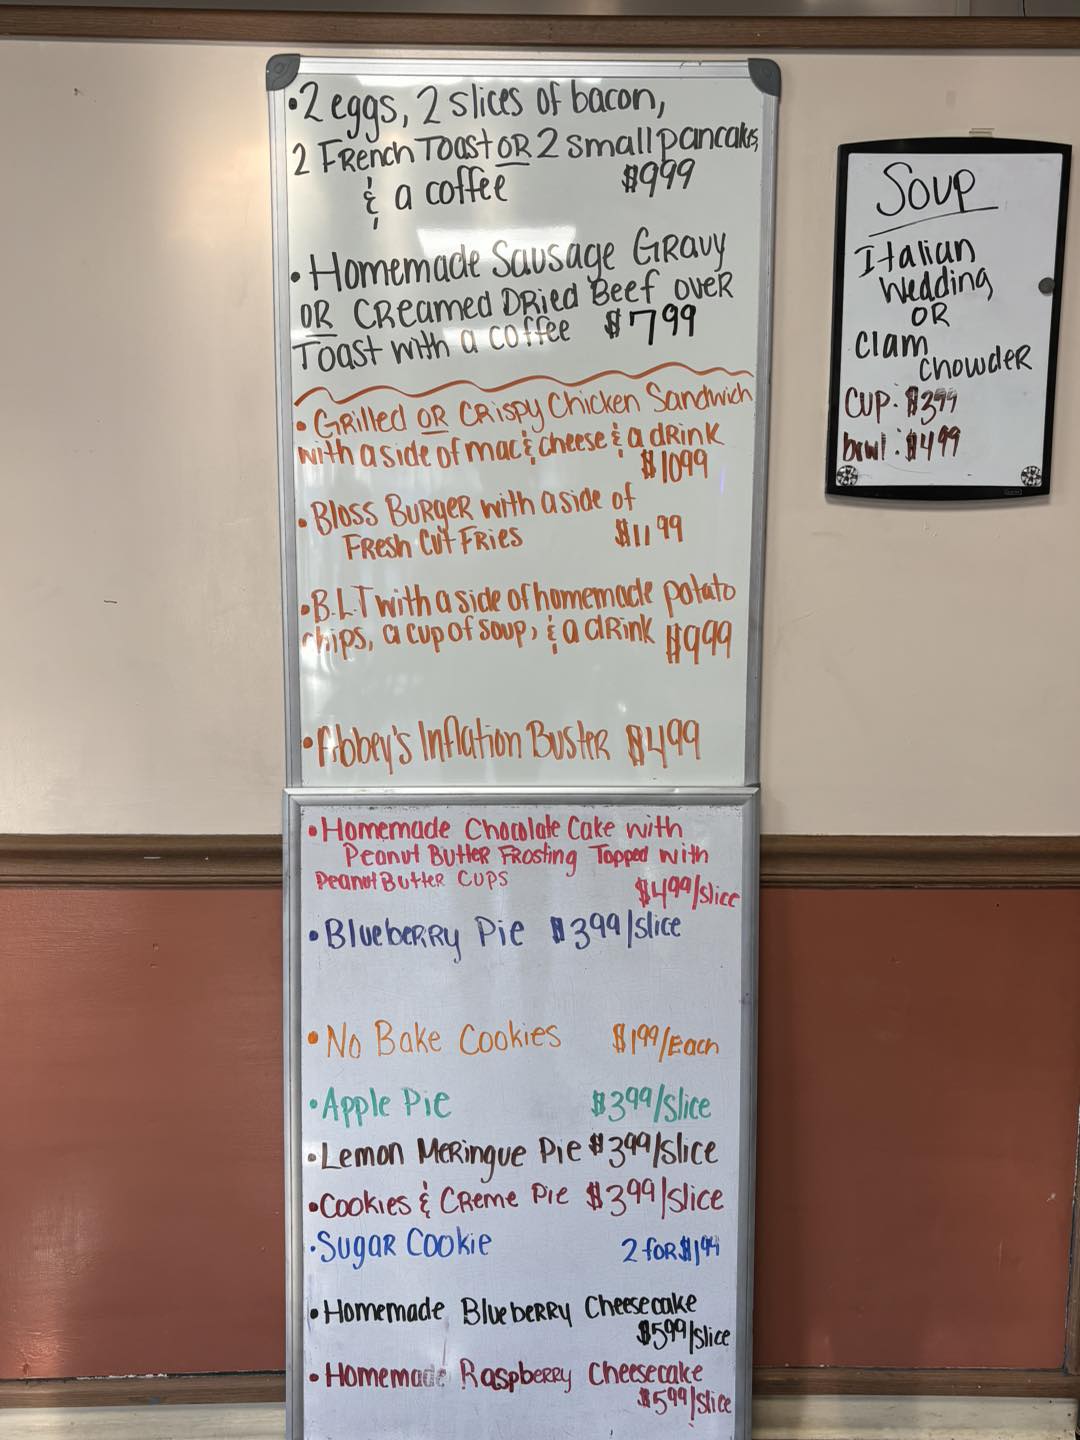 •2 eggs, 2 slices of bacon,
2 French Toast OR 2 small pancakes,
& a coffee $999
• Homemade Sausage Gravy
OR Creamed Dried Beef over
Toast with a coffee $799
• Grilled OR Crispy Chicken Sandwich
with a side of mac & cheese & a drink
$1099
• Bloss Burger with a side of
Fresh Cut Fries $1199
•B.L.T with a side of homemade potato
chips, a cup of soup, & a drink $999
•Abbey's Inflation Buster $499
•Homemade Chocolate Cake with
Peanut Butter Frosting Topped with
Peanut Butter Cups $499/slice
•Blueberry Pie $399/slice
•No Bake Cookies $199/Each
•Apple Pie $399/slice
•Lemon Meringue Pie $399/slice
•Cookies & Creme Pie $399/slice
•Sugar Cookie 2 for $199
•Homemade Blueberry Cheesecake
$599/slice
•Homemade Raspberry Cheesecake
$599/slice
Soup
Italian
Wedding
OR
Clam
Chowder
Cup: $399
bowl: $499